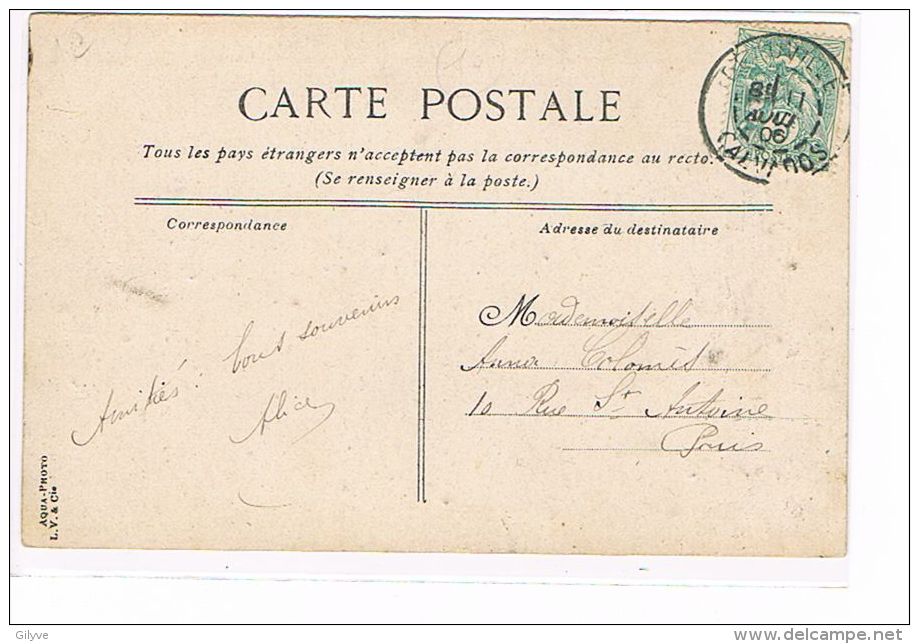 CARTE POSTALE
Tous les pays étrangers n'acceptent pas la correspondance au recto.
(Se renseigner à la poste.)
Correspondance
Adresse du destinataire
Amitiés : bons souvenirs
Alice
Mademoiselle
Anna Colomès
10 Rue St Antoine
Paris
AQUA-PHOTO
L. V. & Cie
AOUT
06
CALVADOS
Gilyve
www.delcampe.net